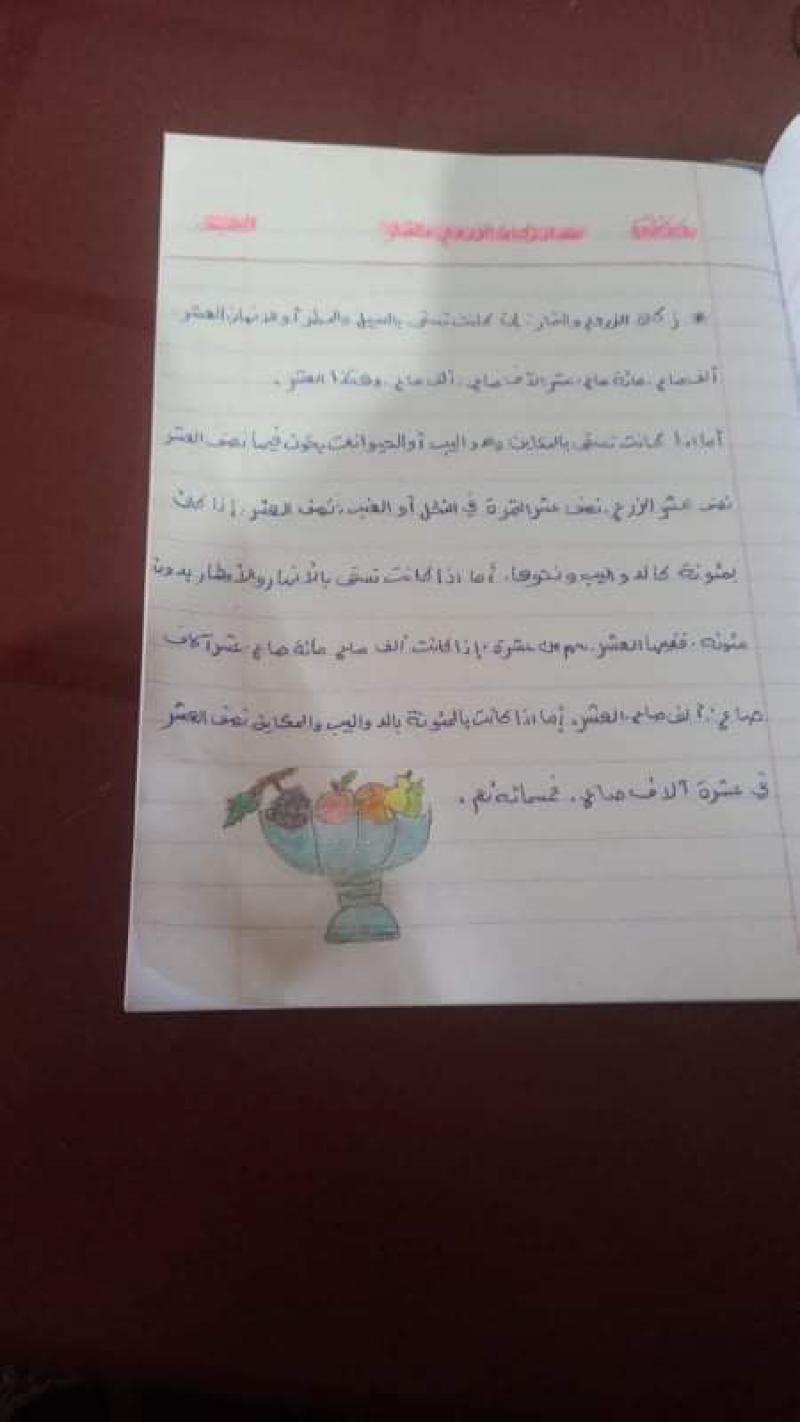 زكاة الزروع والثمار: إن كانت تسقى بالسيل والمطر أو الانهار العشر.
ألف صاع، مائة صاع، عشر الآف صاع، ألف صاع، وهكذا العشر.
أما اذا كانت تسقى بالمكاين ودواليب أو الحيوانات يكون فيها نصف العشر
نصف عشر الزرع، نصف عشر الثمرة في النخل أو العنب، نصف العشر، إذا كان
بمئونة كالدواليب ونحوها، أما اذا كانت تسقى بالأنهار والأمطار بدون
مئونه، ففيها العشر، سهم من عشرة، إذا كانت ألف صاع مائة صاع، عشرآلاف
صاع: ألف صاع، العشر، إما اذا كانت بالمئونة بالدواليب والمكاين نصف العشر
في عشرة آلاف صاع، خمسمائه نعم.